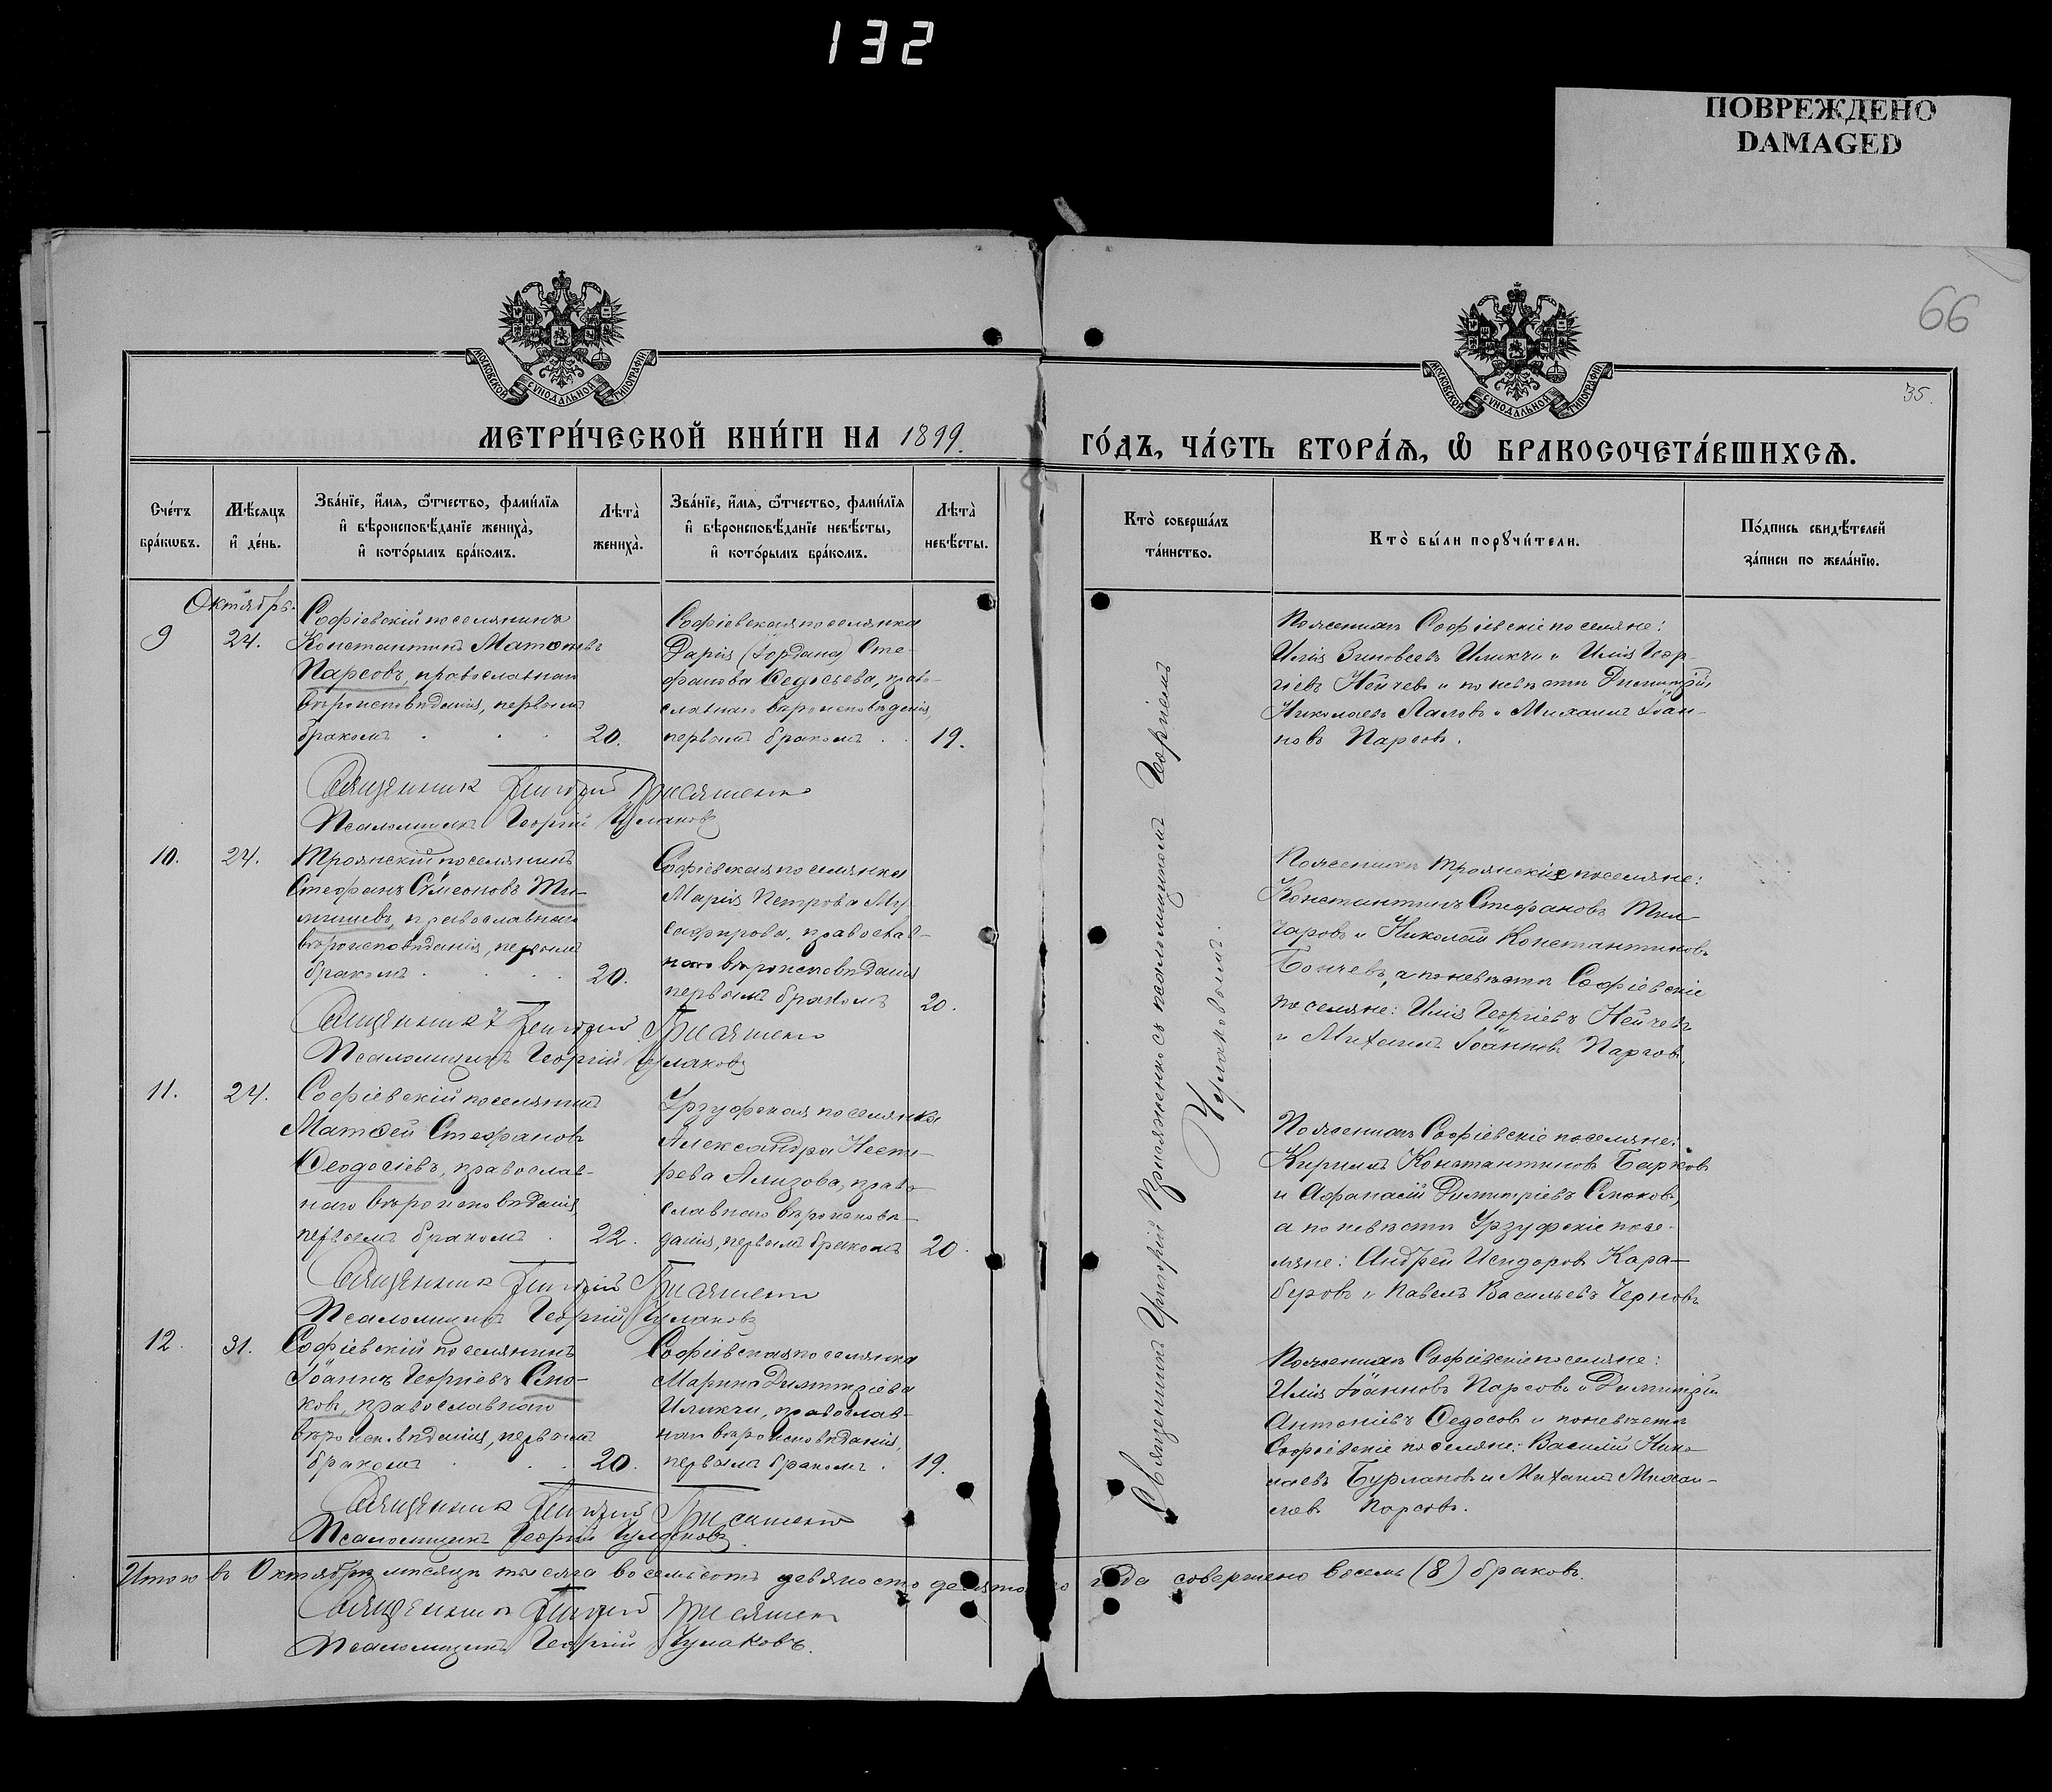 132
ПОВРЕЖДЕНО
DAMAGED
66
35.
МОСКОВСКОЙ СУНОДАЛЬНОЙ ТИПОГРАФІИ
МОСКОВСКОЙ СУНОДАЛЬНОЙ ТИПОГРАФІИ
МЕТРИ́ЧЕСКОЙ КНИ́ГИ НА 1899.
ГО́ДЪ, ЧА́СТЬ ВТОРА́Ѧ, Ѽ БРАКОСОЧЕТА́ВШИХСѦ.
Сче́тъ бра́кωвъ.
Мѣ́сяцъ и҆ де́нь.
Зва́нїе, и҆́мѧ, ѻ҆́тчество, фамн́лїѧ
и҆ вѣроисповѣ́данїе жениха̀,
и҆ кото́рымъ бра́комъ.
Лѣ́та̀ жениха̀.
Зва́нїе, и҆́мѧ, ѻ҆́тчество, фами́лїѧ
и҆ вѣроисповѣ́данїе невѣ́сты,
и҆ кото́рымъ бра́комъ.
Лѣ́та̀ невѣ́сты.
Кто̀ соверша́лъ та́инство.
Кто̀ бы́ли порꙋчи́тели.
По́дпись свидѣ́телей
за́писи по жела́нїю.
Октябрь.
9
24.
Софіевскій поселянинъ
Константинъ Матѳеевъ
Парсовъ, православнаго
вѣроисповѣданія, первымъ
бракомъ
20.
Софіевская поселянка
Дарія (Іордана) Сте-
фанова Ѳедосьева, право-
славнаго вѣроисповѣданія,
первымъ бракомъ
19.
По женихѣ Софіевскіе поселяне:
Илія Зиновьевъ Иликчи и Илія Геор-
гіевъ Нейчевъ и по невѣстѣ Димитрій
Николаевъ Лаловъ и Михаилъ Іоан-
новъ Парсовъ.
Священникъ Григорій Присяженко
Псаломщикъ Георгій Чулаковъ
10.
24.
Троянскій поселянинъ
Стефанъ Сѵмеоновъ
православнаго
вѣроисповѣданія, первымъ
бракомъ
20.
Софіевская поселянка
Марія Петрова Му-
сафирова, православ-
наго вѣроисповѣданія
первымъ бракомъ
20.
По женихѣ Троянскіе поселяне:
Константинъ Стефановъ
и Николай Константиновъ
Бончевъ, а по невѣстѣ Софіевскіе
поселяне: Илія Георгіевъ Нейчевъ
и Михаилъ Іоанновъ Парсовъ.
Священникъ Григорій Присяженко
Псаломщикъ Георгій Чулаковъ
11.
24.
Софіевскій поселянинъ
Матѳей Стефановъ
Ѳеодосіевъ, православ-
наго вѣроисповѣданія
первымъ бракомъ
22.
Урзуфская поселянка
Александра Несте-
рева Ализова, право-
славнаго вѣроисповѣ-
данія, первымъ бракомъ
20.
По женихѣ Софіевскіе поселяне:
Кириллъ Константиновъ Барковъ
и Аѳанасій Димитріевъ Споковъ,
а по невѣстѣ Урзуфскіе посе-
ляне: Андрей Исидоровъ Кара-
буровъ и Павелъ Васильевъ Черновъ
Священникъ Григорій Присяженко
Псаломщикъ Георгій Чулаковъ
12.
31.
Софіевскій поселянинъ
Іоаннъ Георгіевъ Спо-
ковъ, православнаго
вѣроисповѣданія, первымъ
бракомъ
20.
Софіевская поселянка
Марина Димитріева
Иликчи, православ-
наго вѣроисповѣданія,
первымъ бракомъ.
19.
По женихѣ Софіевскіе поселяне:
Илія Іоанновъ Парсовъ и Димитрій
Антоніевъ Ѳедосовъ и по невѣстѣ
Софіевскіе поселяне: Василій Нико-
лаевъ Бурлаковъ и Михаилъ Михаи-
ловъ Парсовъ.
Священникъ Григорій Присяженко
Псаломщикъ Георгій Чулаковъ
Священникъ Григорій Присяженко съ псаломщикомъ Георгіемъ
Чулаковымъ.
Итого въ Октябрѣ мѣсяцѣ тысяча восемьсотъ девяносто девятаго года совершено восемь (8) браковъ.
Священникъ Григорій Присяженко
Псаломщикъ Георгій Чулаковъ.